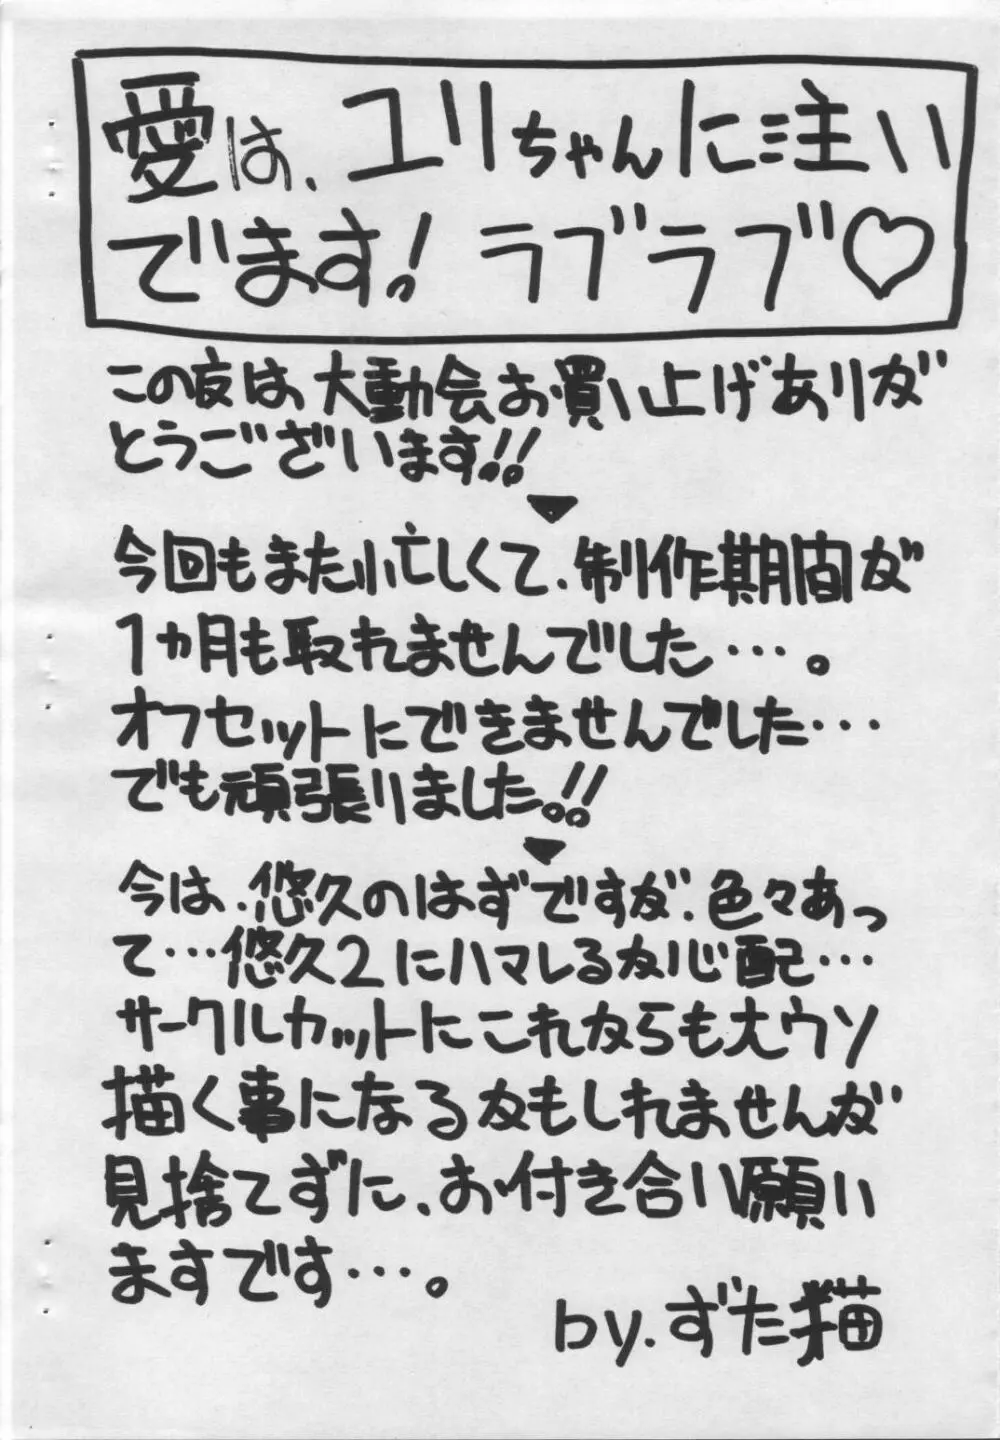 愛は、ユリちゃんに注い
でます! ラブラブ♡
この度は大動会お買い上げありが
とうございます!!
▼
今回もまた忙しくて、制作期間が
1ヵ月も取れませんでした…。
オフセットにできませんでした…
でも頑張りました。!!
▼
今は、悠久のはずですが、色々あっ
て…悠久2にハマレるか心配…
サークルカットにこれからも大ウソ
描く事になるかもしれませんが
見捨てずに、お付き合い願い
ますです…。
by.ずた猫